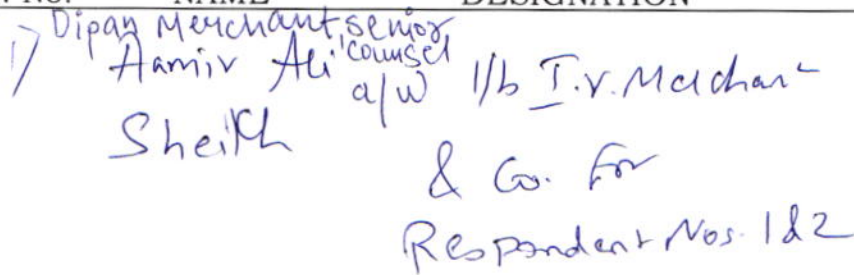 No. NAME DESIGNATION
1) Dipan Merchant, senior counsel
Aamir Ali a/w i/b I.V. Merchant
Sheikh & Co. For
Respondent Nos. 1 & 2